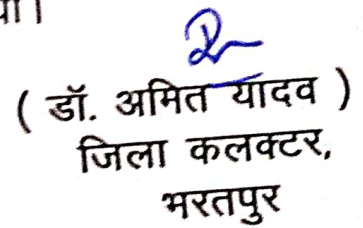 या।
( डॉ. अमित यादव )
जिला कलक्टर,
भरतपुर